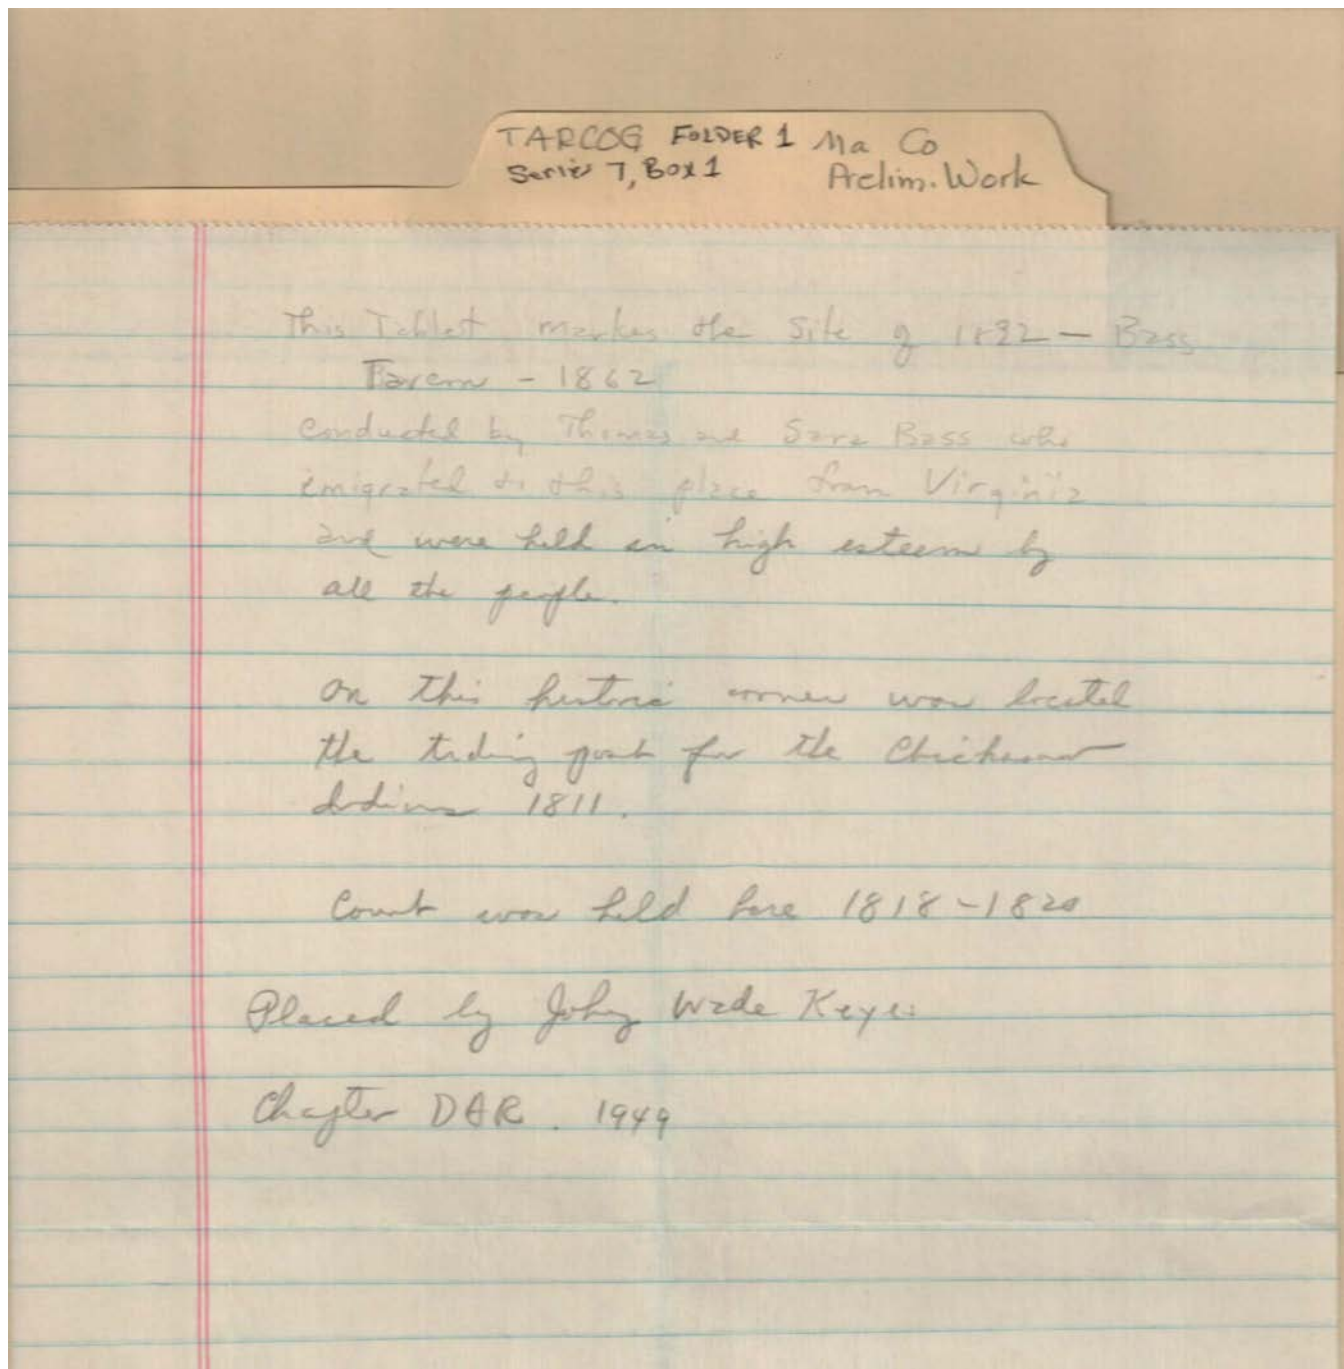 TARCOG FOLDER 1 Ma Co
Series 7, Box 1 Prelim. Work
This Tablet markes the Site of 1822 — Bass
Tavern - 1862
conducted by Thomas and Sara Bass who
emigrated to this place from Virginia
and were held in high esteem by
all the people.
On this historic corner was located
the trading post for the Chickasaw
Indians 1811.
Court was held here 1818-1820
Placed by John Wade Keyes
Chapter DAR. 1949